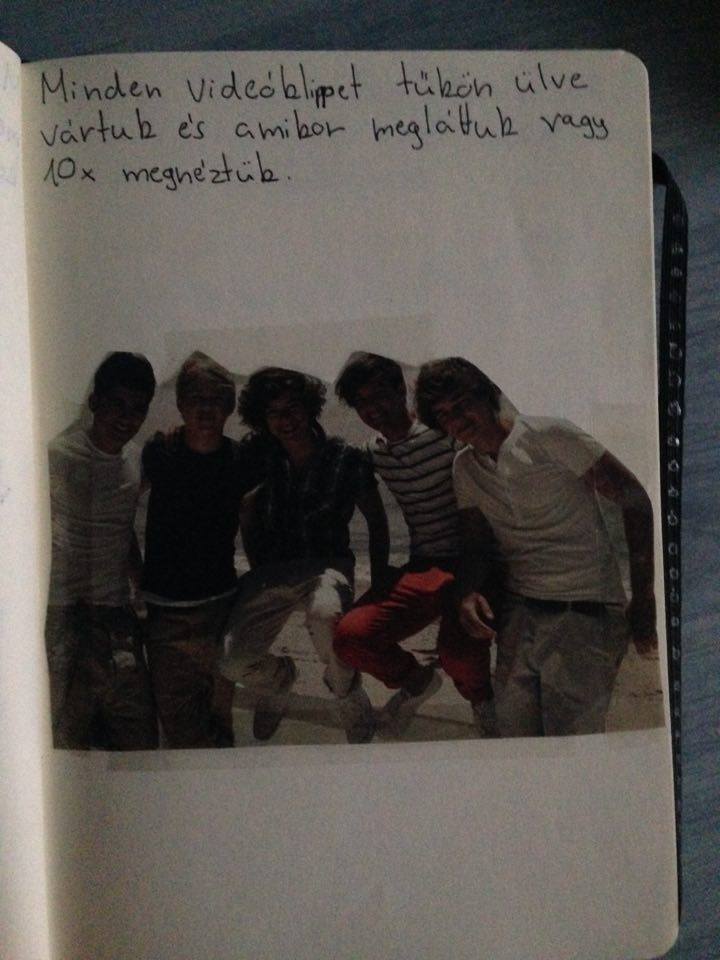 Minden videóklippet tűkön ülve
vártuk és amikor megláttuk vagy
10x megnéztük.